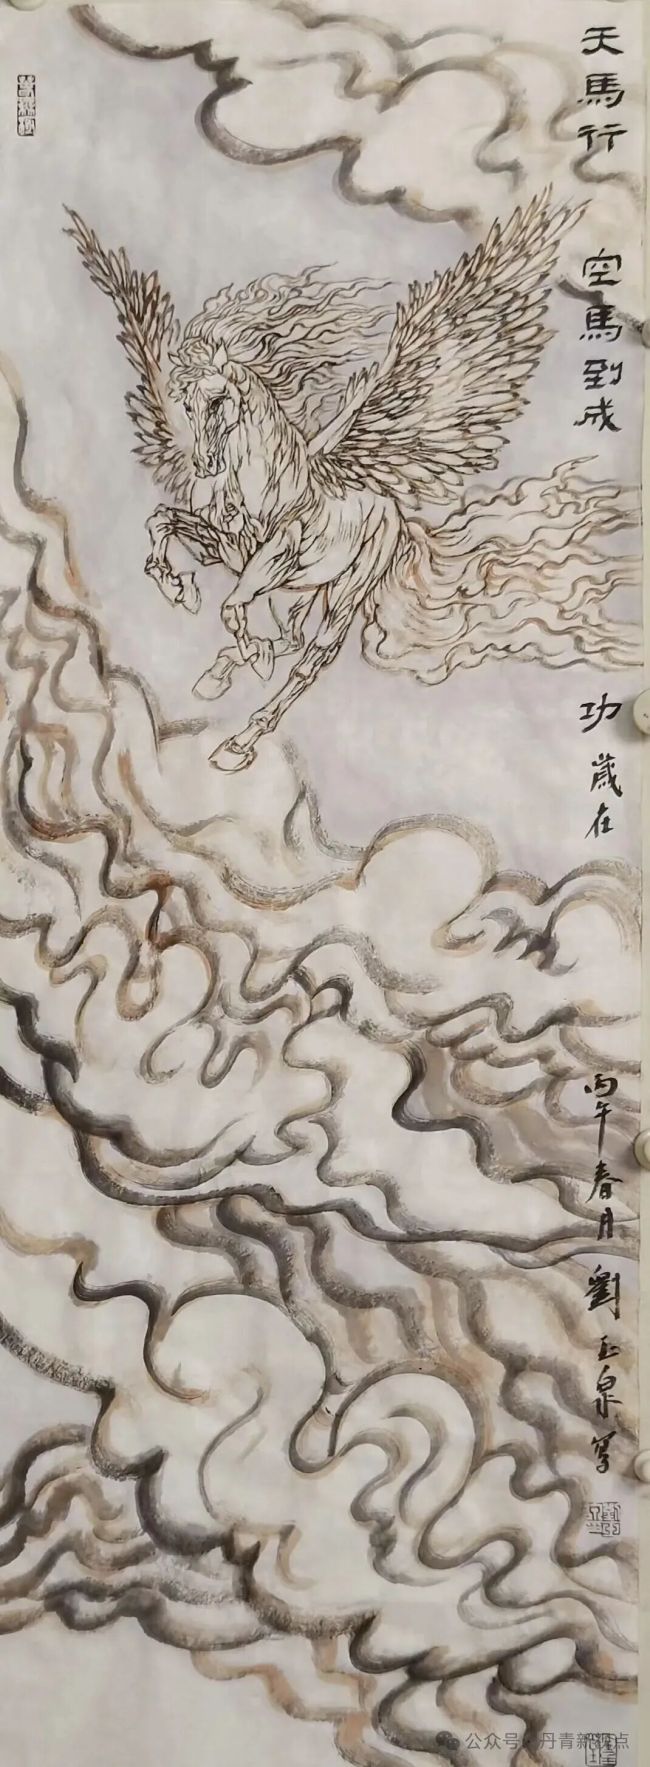 天馬行 空馬到成 功 歳在 丙午春月 劉玉泉写
公众号·丹青新视点